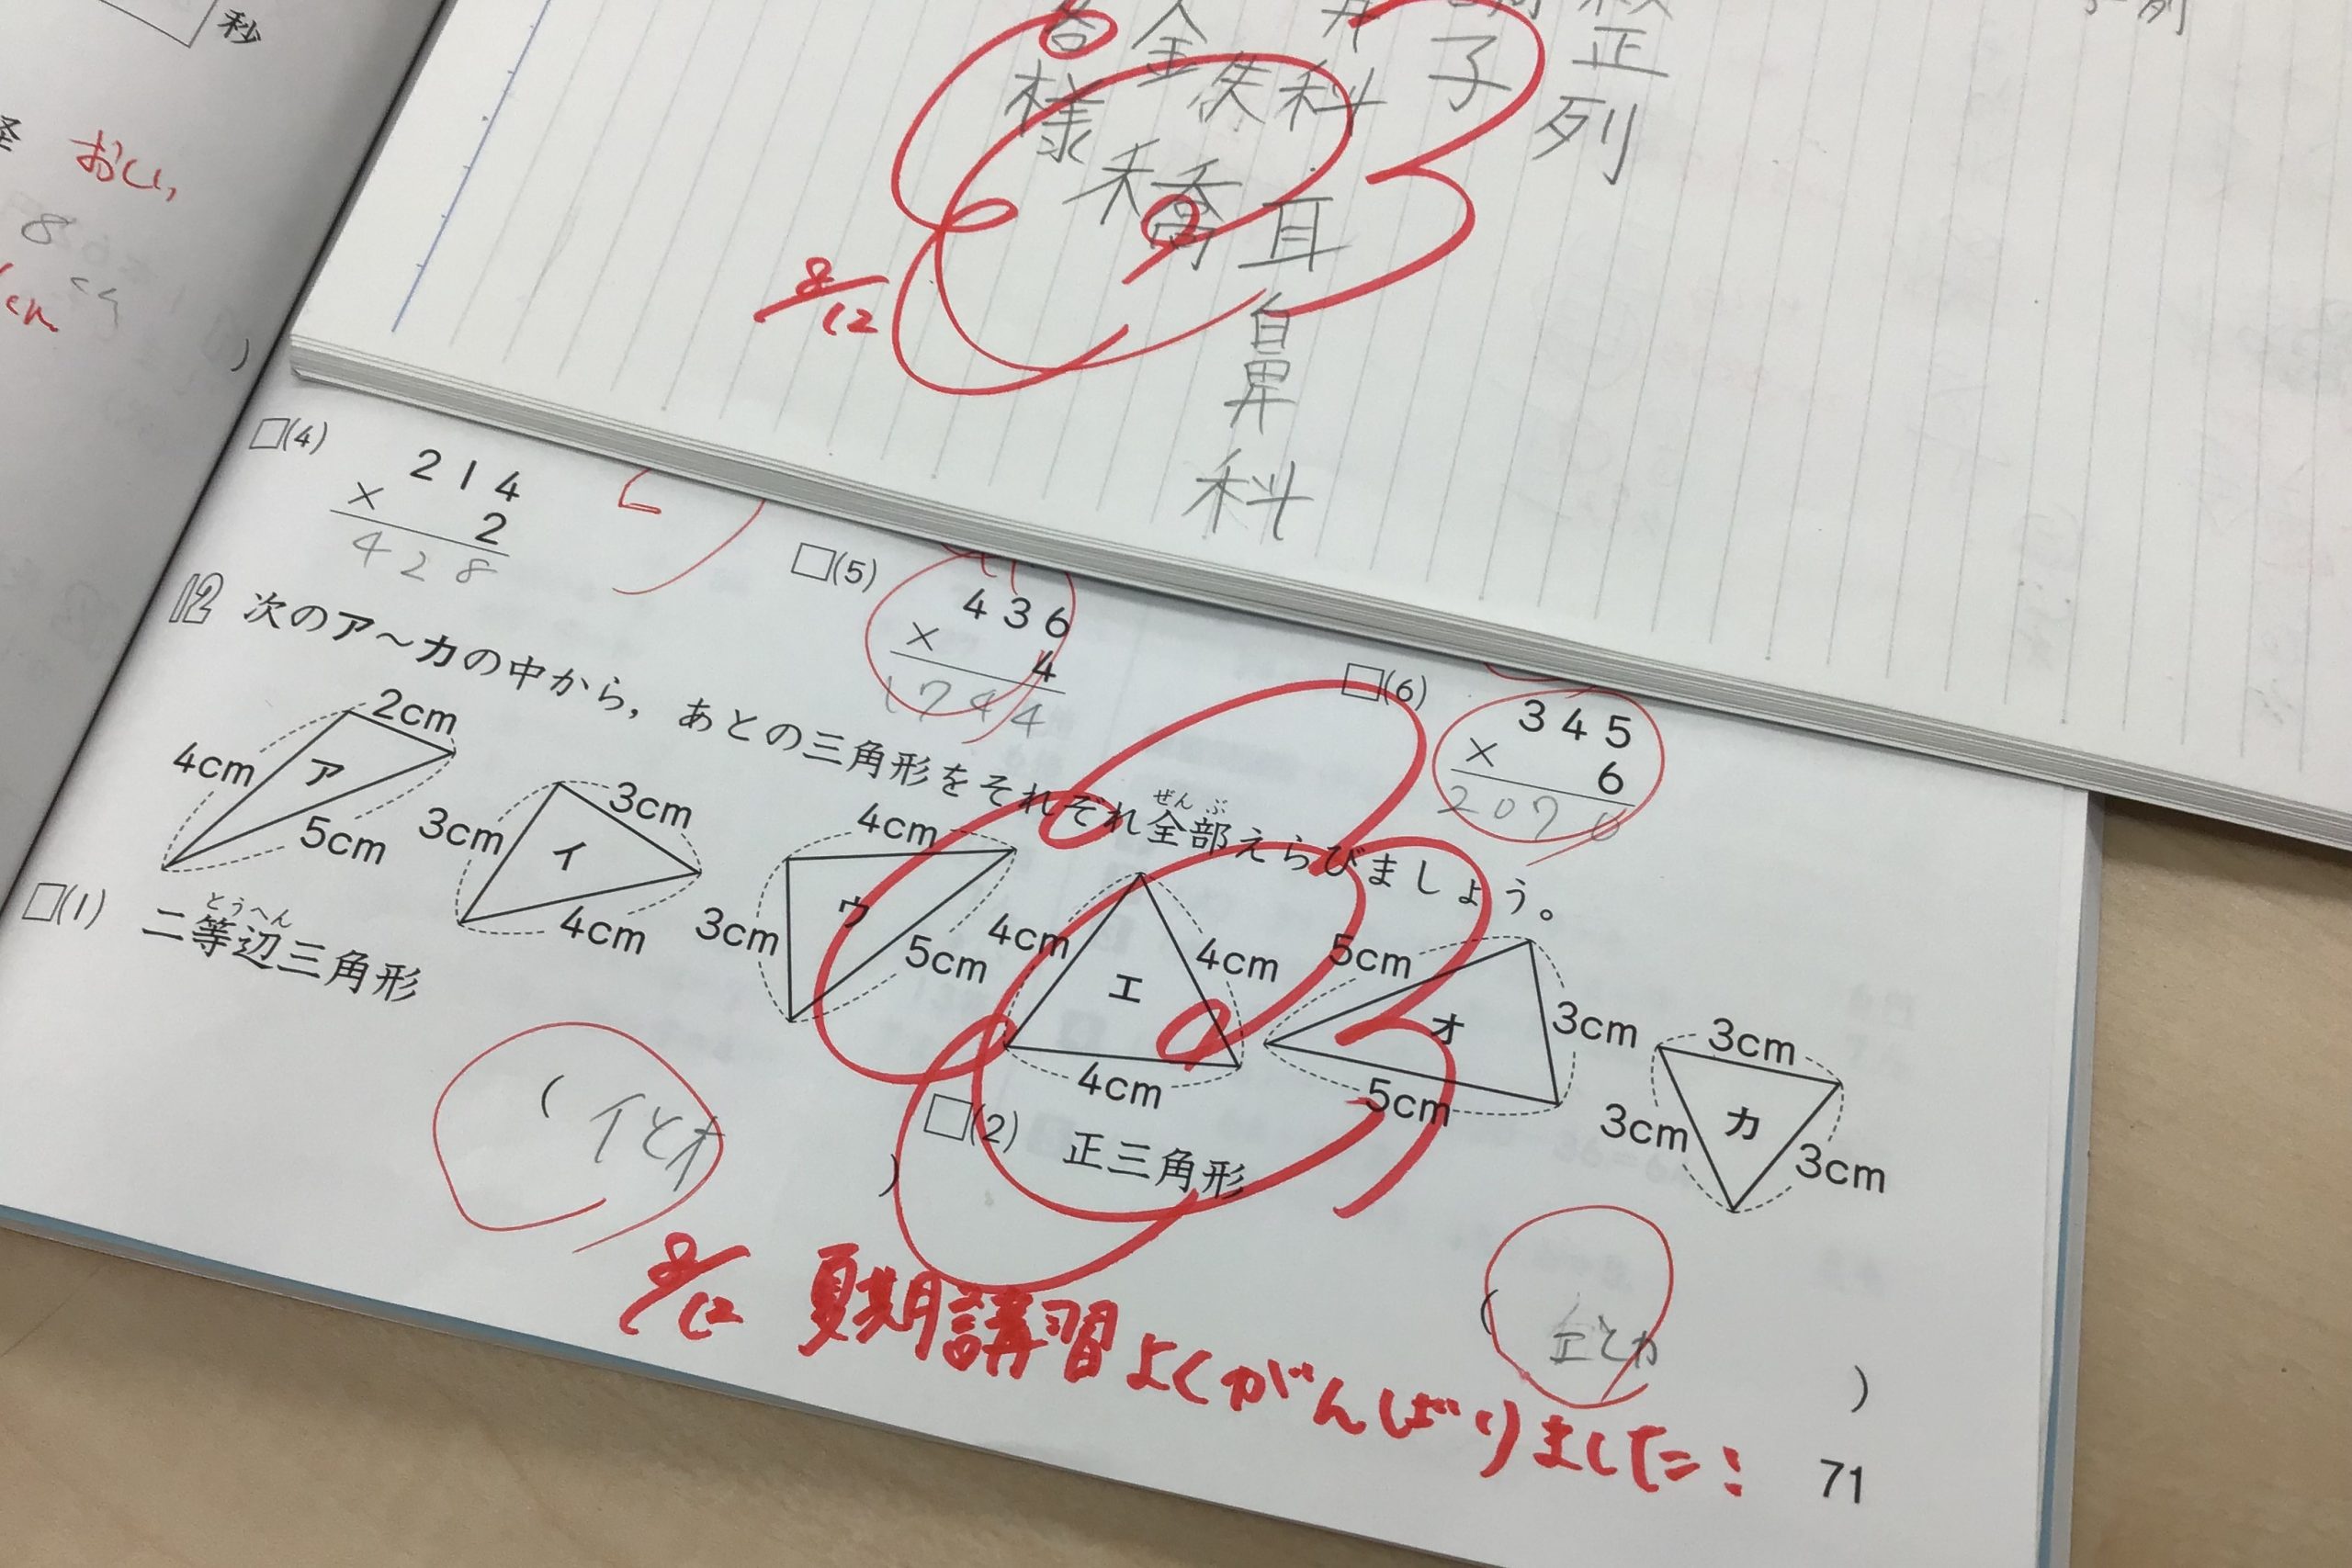 秒
おしい
8
cm
整列
子
科
耳鼻科
金失
様
禾喬
8/12
□(4)
214
× 2
428
□(5)
436
× 4
1744
□(6)
345
× 6
2070
12 次のア～カの中から，あとの三角形をそれぞれ全部えらびましょう。
ぜんぶ
2cm
4cm
ア
5cm
3cm
3cm
イ
4cm
4cm
3cm
ウ
5cm
4cm
4cm
エ
4cm
5cm
3cm
オ
5cm
3cm
3cm
カ
3cm
□(1) 二等辺三角形
とうへん
(イとオ)
□(2) 正三角形
(エとカ)
8/12 夏期講習よくがんばりました：
71